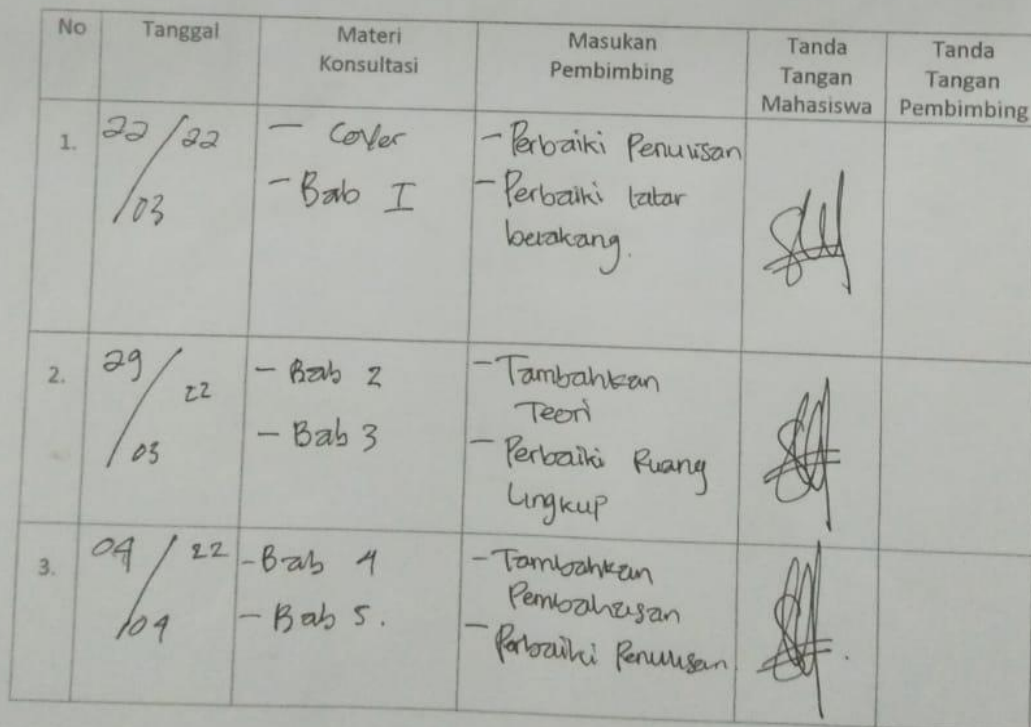 No Tanggal Materi Konsultasi Masukan Pembimbing Tanda Tangan Mahasiswa Tanda Tangan Pembimbing
1. 22/03 22
- Cover
- Bab I
- Perbaiki Penulisan
- Perbaiki latar
belakang.
2. 29/03 22
- Bab 2
- Bab 3
- Tambahkan
Teori
- Perbaiki Ruang
Lingkup
3. 04/04 22
- Bab 4
- Bab 5.
- Tambahkan
Pembahasan
- Perbaiki Penulisan